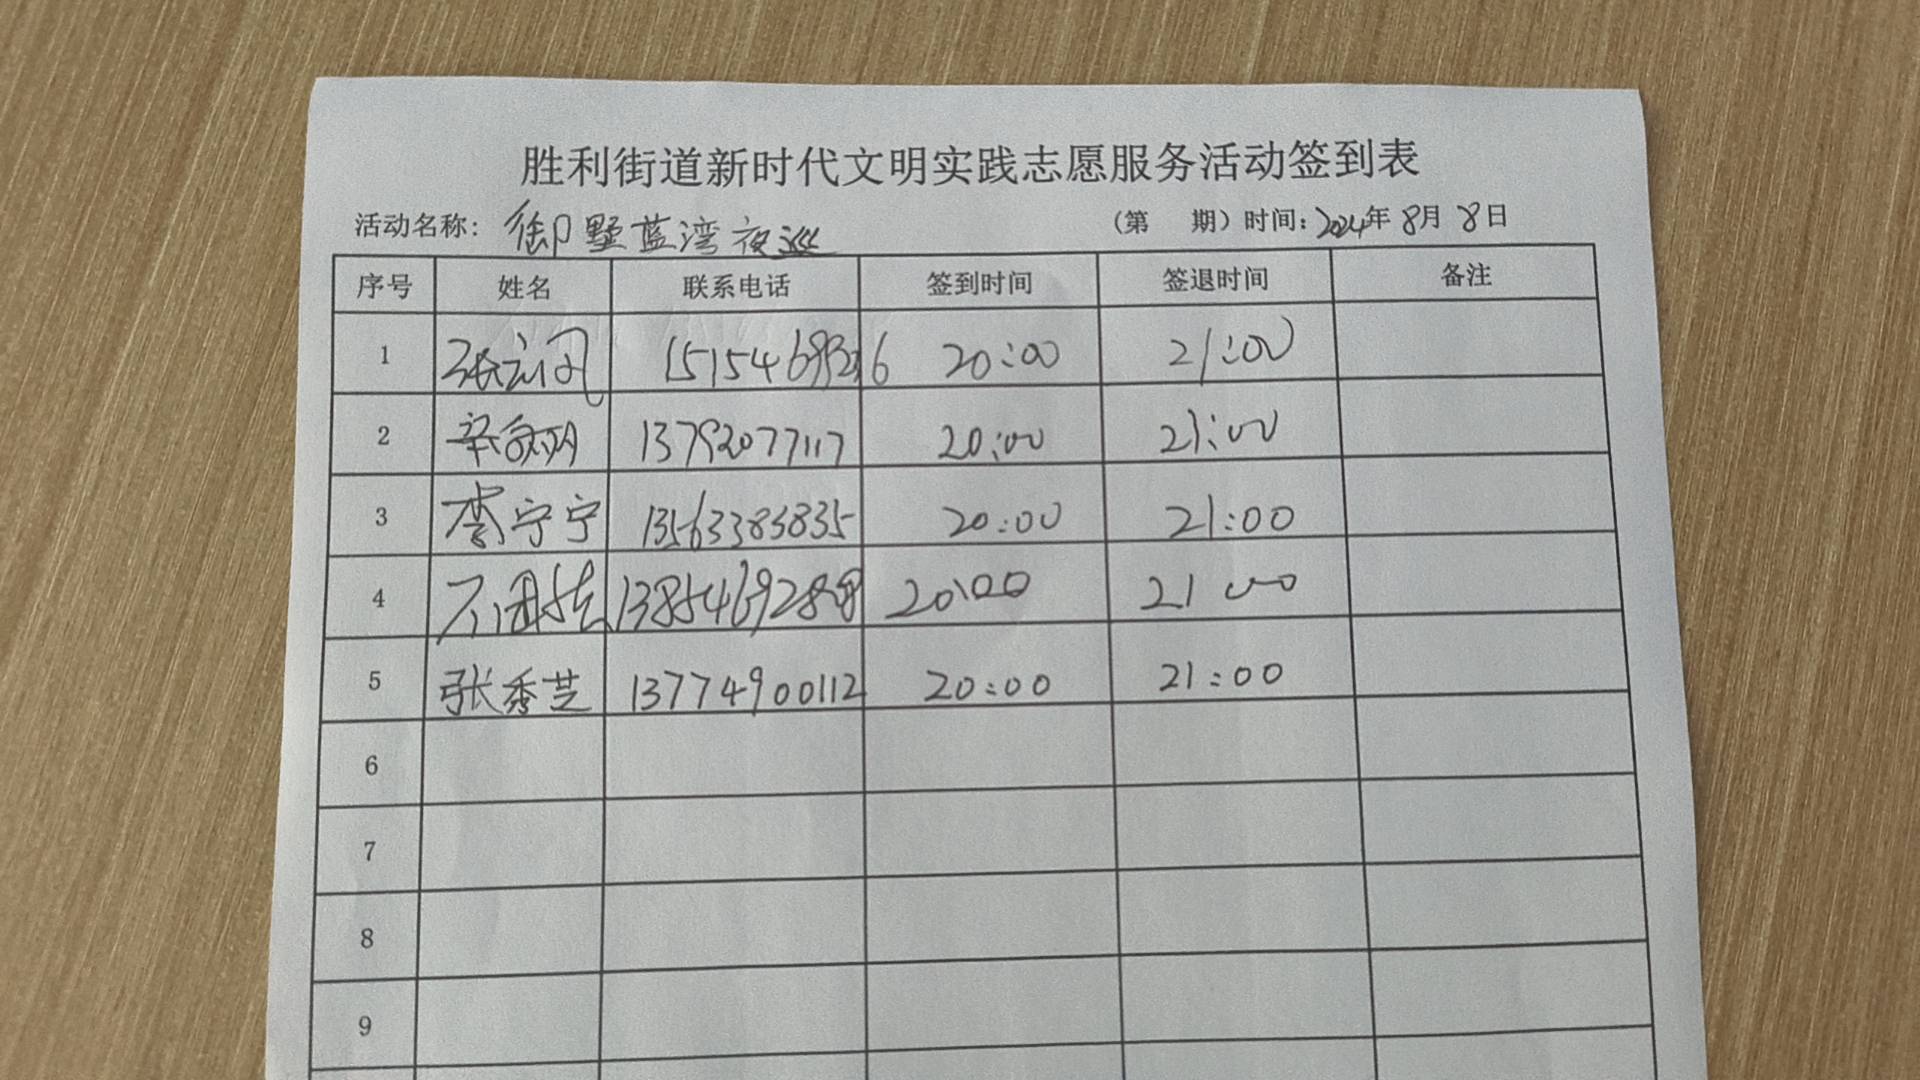 胜利街道新时代文明实践志愿服务活动签到表
活动名称: 御墅蓝湾夜巡 (第 期) 时间: 2024年 8月 8日
序号 姓名 联系电话 签到时间 签退时间 备注
1 20:00 21:00
2 13792077117 20:00 21:00
3 李宁宁 13563383835 20:00 21:00
4 20:00 21:00
5 张秀芝 13774900112 20:00 21:00
6
7
8
9